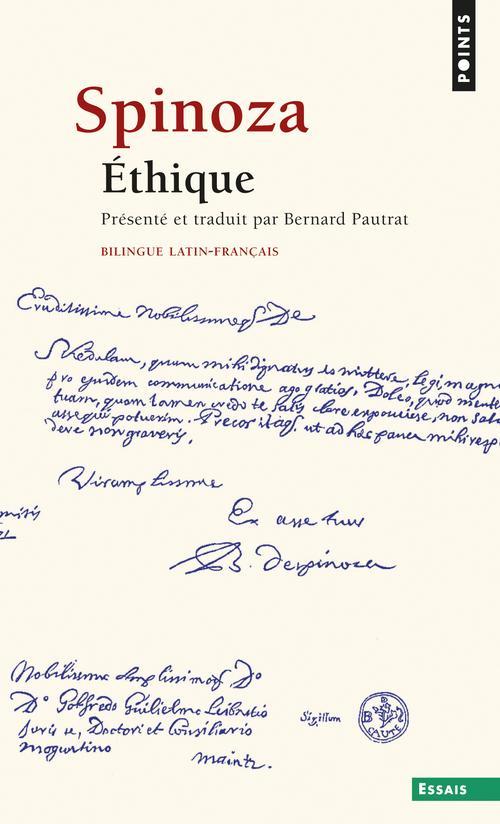 POINTS
Spinoza
Éthique
Présenté et traduit par Bernard Pautrat
BILINGUE LATIN-FRANÇAIS
Eruditissime Nobilissimeq De
Schedulam, quam mihi dignatus es mittere, legi, magna
pro ejusdem communicatione ago gratias, Doleo, quod mente
tuam, quam tamen credo te satis clare exposuisse, non satis
assequi potuerim. Precor itaq. ut ad haec pauca mihi resp
dere non graveris.
Vir amplissime
Ex asse tuus
B. despinoza
Nobilissimo Amplissimoq Do
Do Gotfredo Guilielmo Leibnitio
Juris u, Doctori et Consiliario
Moguntino
maintz.
Sigillum
B D S
CAUTE
ESSAIS